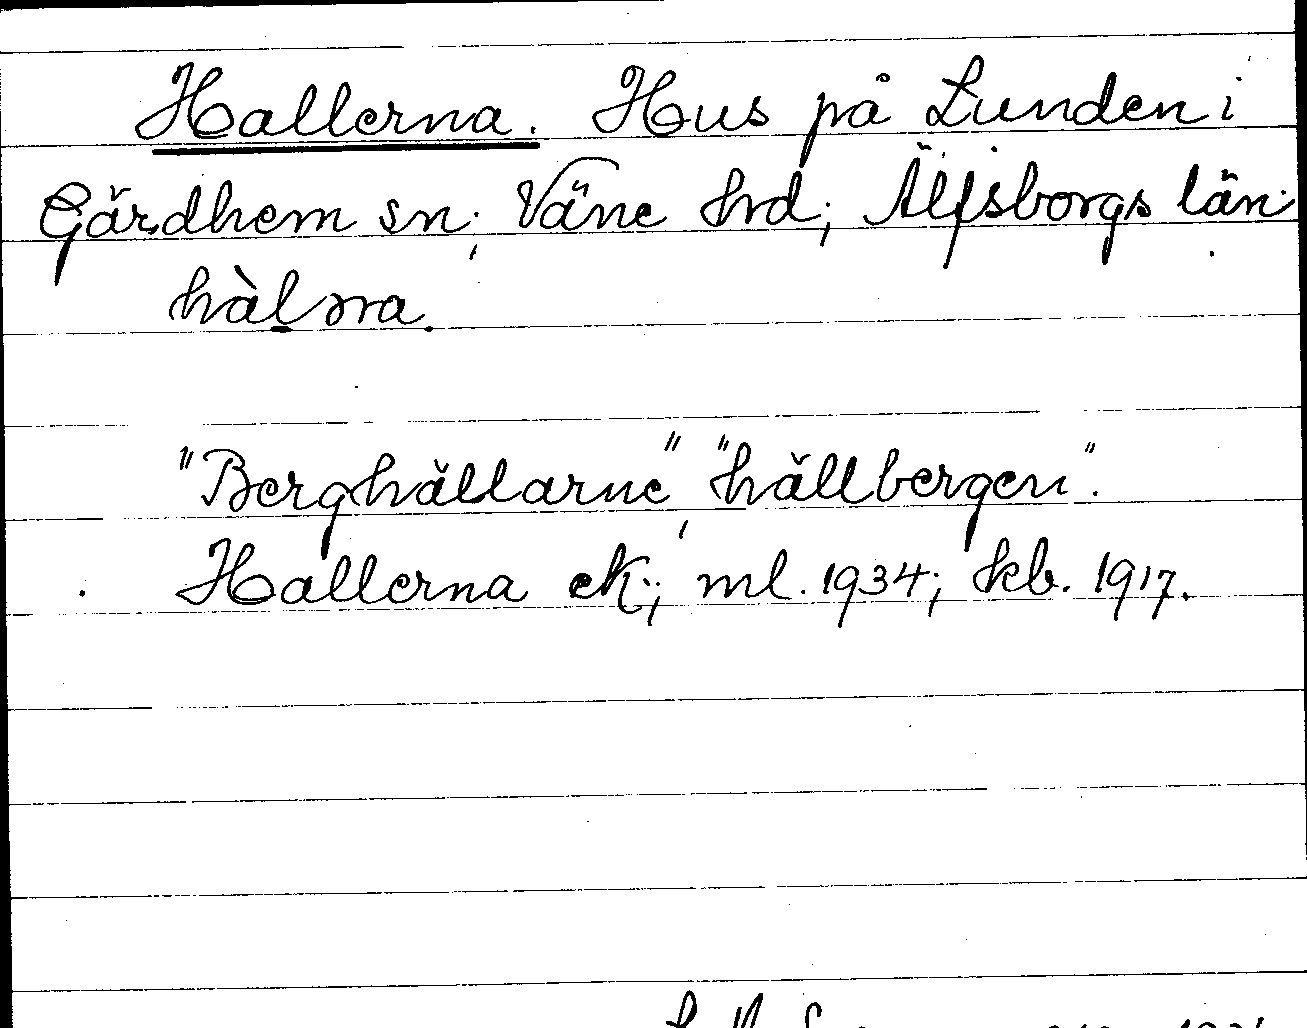 Hallerna. Hus på Lunden i
Gärdhem sn; Väne hrd; Älfsborgs län.
hàl̠ɔra.
"Berghällarne", "hällbergen".
Hallerna ek; ml. 1934; kb. 1917.